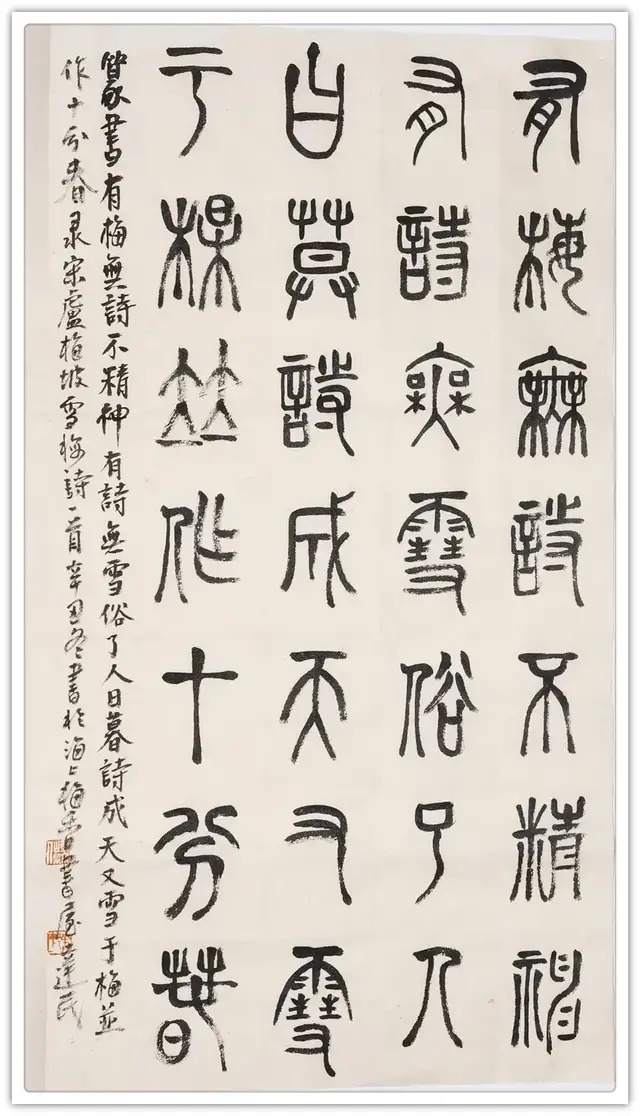 有梅無詩不精神
有詩無雪俗了人
日暮詩成天又雪
于梅並作十分春
篆書有梅無詩不精神有詩無雪俗了人日暮詩成天又雪于梅並
作十分春录宋盧梅坡雪梅詩一首辛丑冬書於海上梅香書屋達民